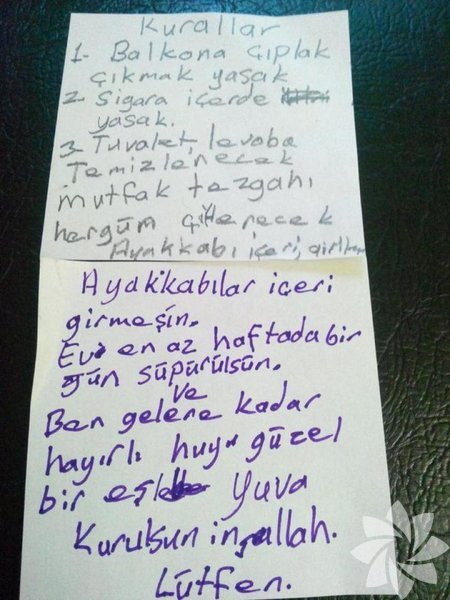 Kurallar
1- Balkona çıplak
çıkmak yaşak
2- Sigara içerde
yaşak.
3- Tuvalet, levoba
Temizlenecek
mutfak tezgahı
hergüm çilenecek
Ayakkabı içeri, girl
Ayakkabılar içeri
girmeşin.
Evi en az haftada bir
gün süpürülsün.
ve
Ben gelene kadar
hayırlı huyu güzel
bir eşle yuva
Kurulsun inşallah.
Lütfen.